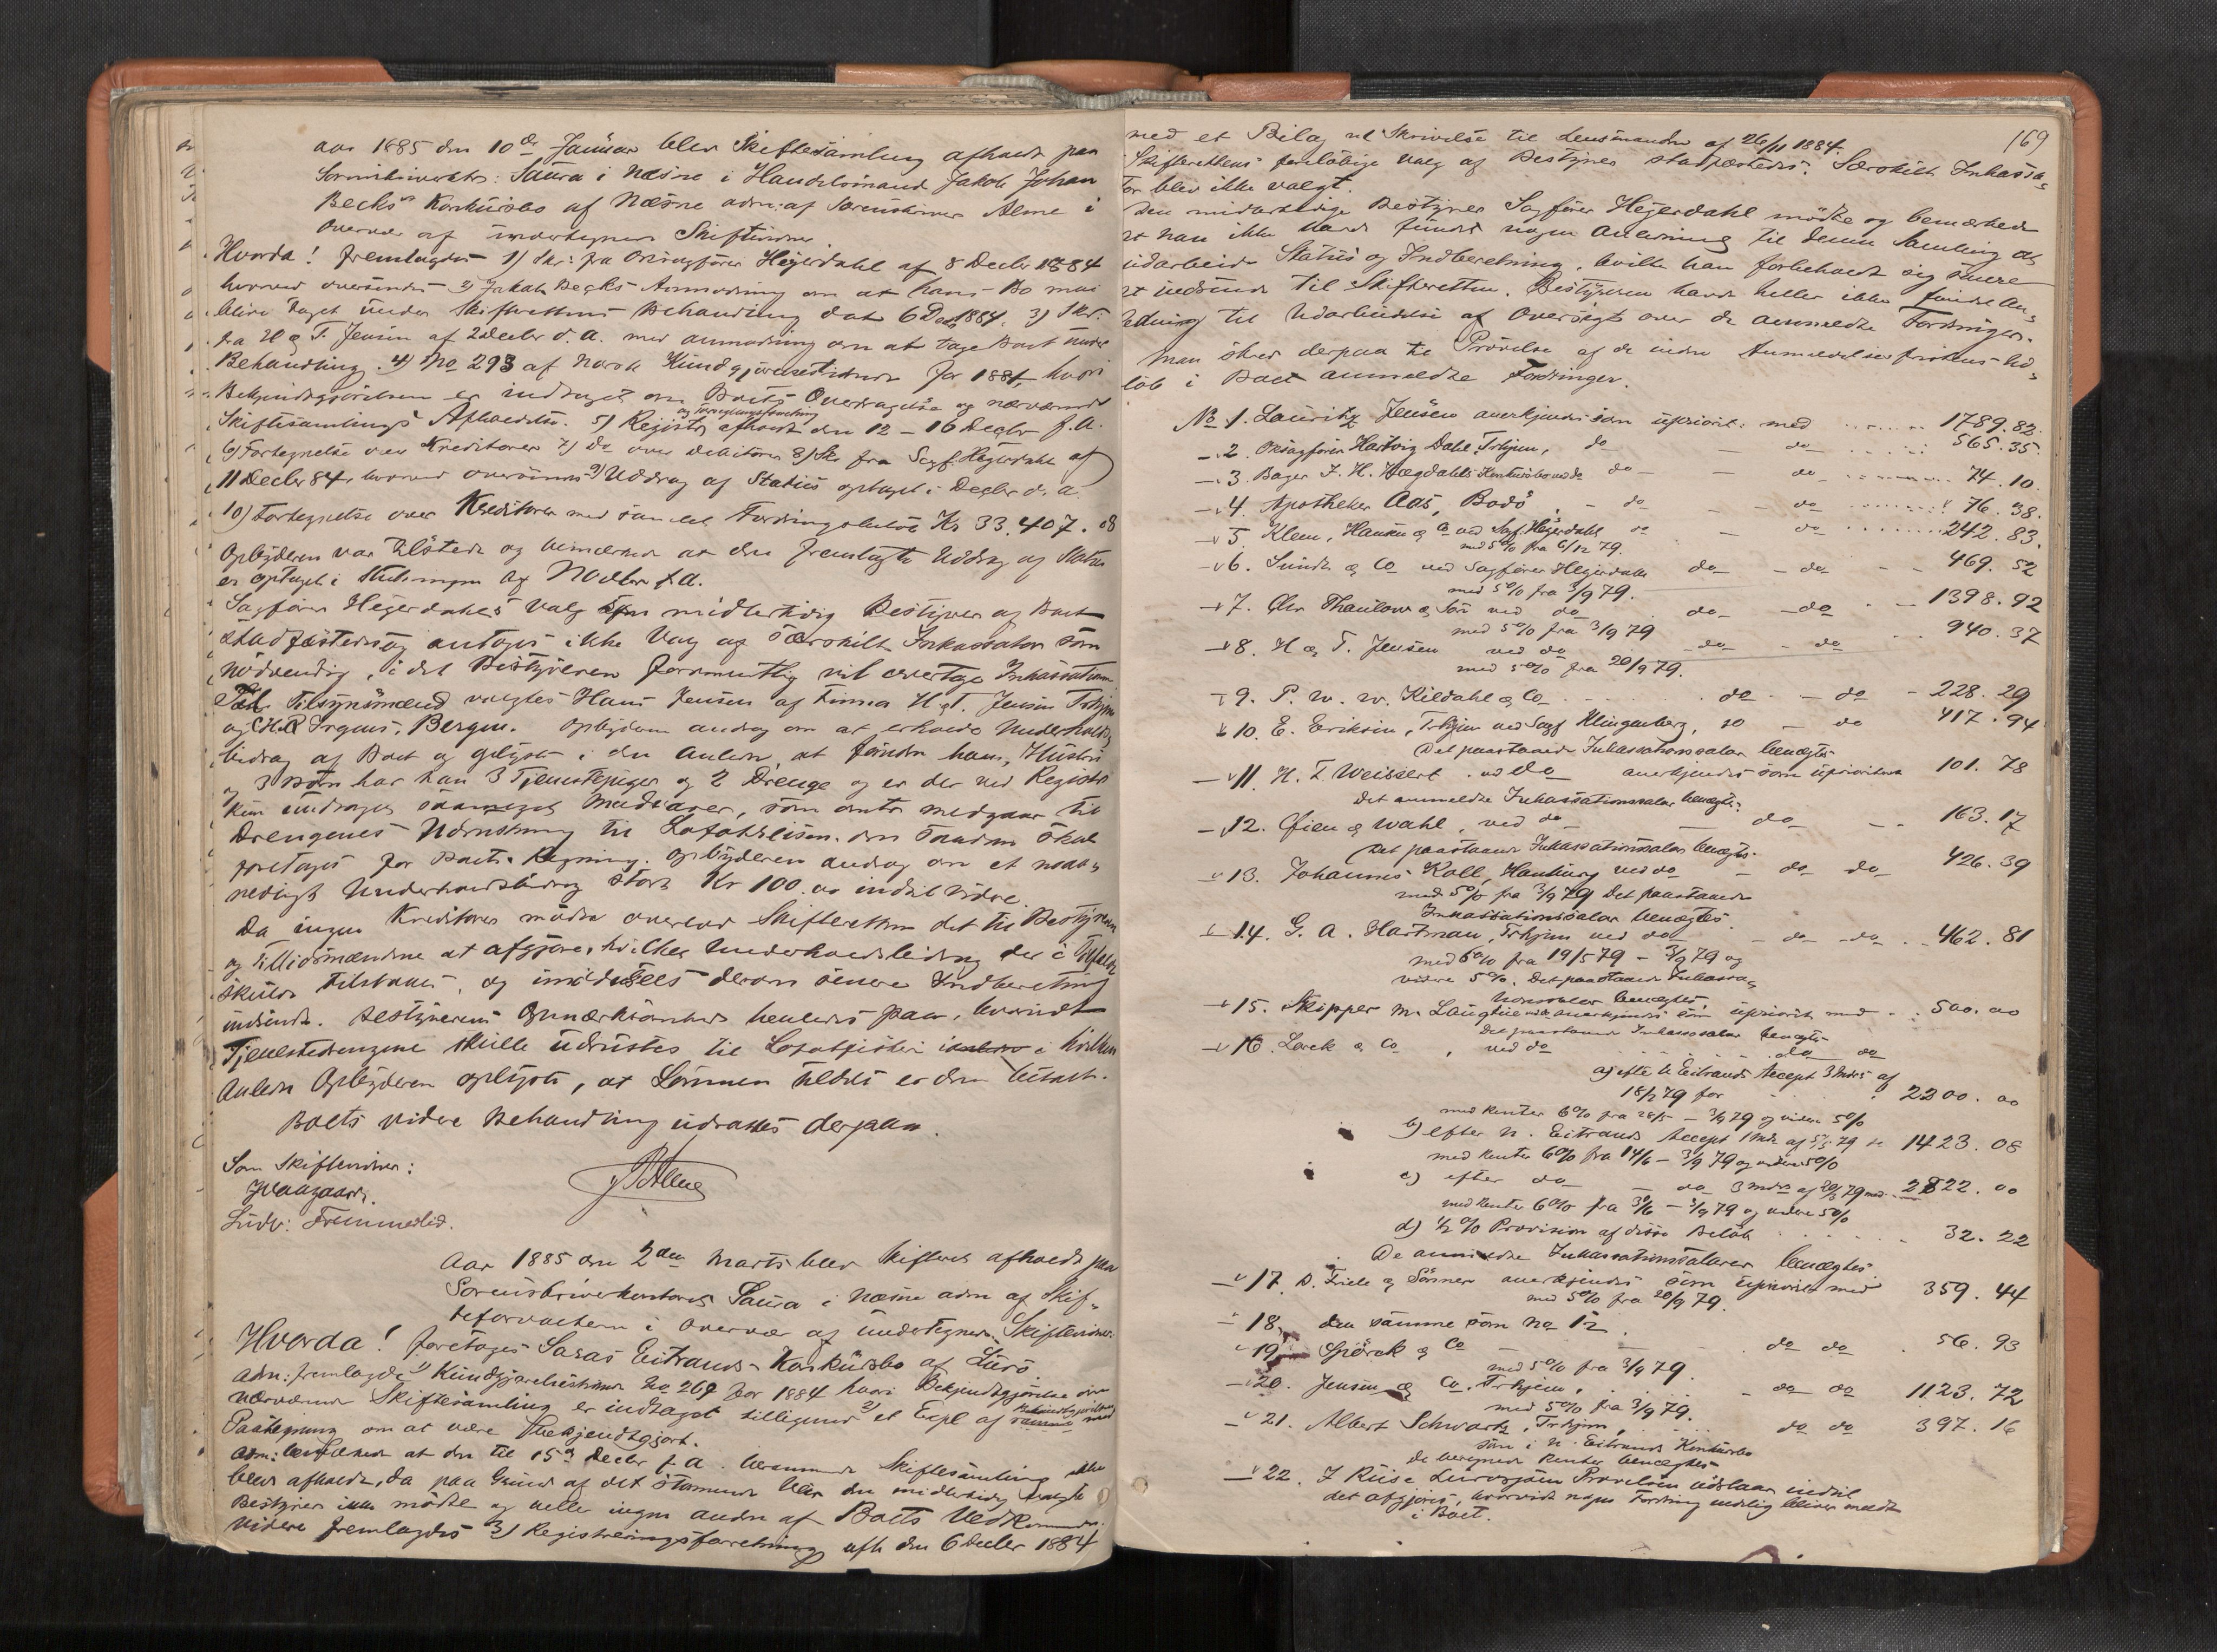 Aar 1885 den 10de Januar blev Skiftesamling afholdt paa
Sorenskriverktr: Saura i Næsne i Handelsmand Jakob Johan
Becks Konkursbo af Næsne adm: af Sorenskriver Alme i
Overvær af undertegnede Skiftevidner.
Hvorda! fremlagdes 1) Skr: fra Oversagfører Heyerdahl af 8 Decbr 1884
hvorved oversendes 2) Jakob Becks Anmodning om at hans Bo maa
blive taget under Skifterettens Behandling dat 6 Dec 1884, 3) Skr:
fra H & T. Jensen af 2 Decbr d. A. med anmodning om at tage Boet under
Behandling. 4) No 293 af Norsk Kundgjørelsestidende for 1884, hvori
Bekjendtgjørelsen er indtaget om Boets Overdragelse og nærværende
og forseglingsforretning
Skiftesamlings Afholdelse. 5) Registr afholdt den 12 - 16 Decbr f. A.
6) Fortegnelse over Kreditorer 7) Do over debitorer 8) Skr fra Sagf. Heyerdahl af
11 Decbr 84, hvorved oversendes 9) Uddrag af Status optaget i Decbr d. a.
10) Fortegnelse over Kreditorer med samlet Fordringsbeløb Kr 33.407.08
Opbyderen var tilstede og bemærkede at den fremlagte Uddrag af Status
er optaget i Slutningen af Novbr f.a.
Sagfører Heyerdahls Valg som midlertidig Bestyrer af Boet
stadfæstedes og antages ikke Valg af særskilt Inkassator som
nødvendig, idet Bestyreren formentlig vil overtage Inkassationen
Til Tilsynsmænd valgtes Hans Jensen af Firma H & T. Jensen Trhjem
og Chr. R Irgens, Bergen. Opbyderen androg om at erholde Underholds
bidrag af Boet og oplyste i den Anledn. at foruden ham, Hustru
og 3 Børn har han 3 Tjenestepiger og 2 Drenge og er der ved Registr
kun undtaget saameget Madvarer, som omtr medgaar til
Drengenes Udrustning til Lofotfisket, som saadan skal
foretages for Boets Regning. Opbyderen androg om et maa-
nedligt Underholdsbidrag stort Kr 100.00 indtil videre.
Da ingen Kreditorer mødte overlod Skifteretten det til Bestyreren
og Tillidsmændene at afgjøre, hvilket Underholdsbidrag der i Tilfælde
skulde tilstaaes, og imødesees derom senere Indberetning
indsendt. Bestyrerens Opmærksomhed henledes paa, hvorvidt
Tjenestedrengene skulle udrustes til Lofotfisket i hvilken
Anledn Opbyderen oplyste, at Lønnen tildels er dem betalt.
Boets videre Behandling udsattes derpaa.
Som Skiftevidner:
JAlme
Ludv: Fremmerlid.
Aar 1885 den 2den Marts blev Skifteret afholdt paa
Sorenskriverkontoret Saura i Næsne adm af Skif-
teforvalteren i Overvær af undertegnede Skiftevidner.
Hvorda! foretages Saras Eitrands Konkursbo af Lurø.
Adm: fremlagde 1) Kundgjørelsestidende No 269 for 1884 hvori Bekjendtgjørelse om
nærværende Skiftesamling er indtaget tilligemed 2) et Expl af samme med
Paategning om at være bekjendtgjort.
Adm: bemærkede at den til 15de Decbr f. A. berammede Skiftesamling ikke
blev afholdt, da paa Grund af det stormende Veir den midlertidig valgte
Bestyrer ikke mødte og heller ingen anden af Boets Vedkommende.
Videre fremlagdes 3) Registreringsforretning afh den 6 Decbr 1884
169
med et Bilag ut Skrivelse til Lensmanden af 26/11 1884.
Skifterettens foreløbige Valg af Bestyrer stadfæstedes. Særskilt Inkassa-
tor blev ikke valgt.
Den midlertidige Bestyrer Sagfører Heyerdahl mødte og bemærkede
at han ikke havde fundet nogen Anledning til denne Samling at
udarbeide Status og Indberetning, hvilke han forbeholdt sig senere
at indsende til Skifteretten. Bestyreren havde heller ikke fundet An-
ledning til Udarbeidelse af Oversigt over de anmeldte Fordringer.
Man skred derpaa til Prøvelse af de inden Anmeldelsesfristens Ud-
løb i Boet anmeldte Fordringer.
No 1. Lauritz Jensen anerkjendes som upriorit: med 1789.82.
2. Oversagfører Hartvig Dahl, Trhjem, do do 565.35.
3. Bager J. H. Hægdahls Konkursbo ved do do do 74.10.
4. Apotheker Aas, Bodø, do do 76.38.
5. Klem, Hansen & Co ved Sagf. Heyerdahl do do 242.83.
med 5% fra 6/12 79.
6. Sundt & Co ved Sagfører Heyerdahl do do 469.52
med 5% fra 3/9 79.
7. Chr Thaulow & Søn ved do do do 1398.92
med 5% fra 3/9 79
8. H & T. Jensen ved do do do 940.37
med 5% fra 20/9 79.
9. P. W. W. Kildahl & Co do do 228.29
10. E. Eriksen, Trhjem ved Sagf Klingenberg, do do 417.94
Det paastaaede Inkassationssalar benægtes
11. H. F. Weissert ved do anerkjendes som uprioriteret 101.78
Det anmeldte Inkassationssalar benægtes.
12. Øien & Wahl, ved do do 163.17
Det paastaaede Inkassationssalar benægtes.
13. Johannes Koll, Hamburg ved do do do 426.39
med 5% fra 3/9 79 Det paastaaede
Inkassationssalar benægtes.
14. G. A. Hartman, Trhjem ved do do do 462.81
med 6% fra 19/5 79 - 3/9 79 og
videre 5%. Det paastaaede Inkassa-
tionssalar benægtes.
15. Skipper M. Laugtue ved do anerkjendes som upriorit med 500.00
Det paastaaede Inkassosalar benægtes
16. Lorck & Co, ved do do do
a) efter N Eitrands Accept 3 Mdrs af
18/2 79 for 2200.00
med Renter 6% fra 28/5 - 3/9 79 og videre 5%
b) efter N. Eitrands Accept 1 Mdr af 5/5 79 1423.08
med Renter 6% fra 14/6 - 3/9 79 og videre 5%
c) efter do do 3 mdrs af 20/3 79 med 2822.00
med Renter 6% fra 30/6 - 3/9 79 og videre 5%
d) 1/2 % Provision af disse Beløb 32.22
De anmeldte Inkassationssalarer benægtes
17. D. Friele & Sønner anerkjendes som uprioriter med 359.44
med 5% fra 20/9 79.
18. den samme som No 12.
19. Spörck & Co do do 56.93
med 5% fra 3/9 79.
20. Jensen & Co. Trhjem, do do 1123.72
med 5% fra 3/9 79.
21. Albert Schwartz, Trhjem, do do 397.16
som i N. Eitrands Konkursbo
De beregnede Renter benægtes
22. J Riise Lurøsjøen Prøvelsen udstaar indtil
det afgjøres, hvorvidt nogen Fordring endelig bliver anmeldt
i Boet.